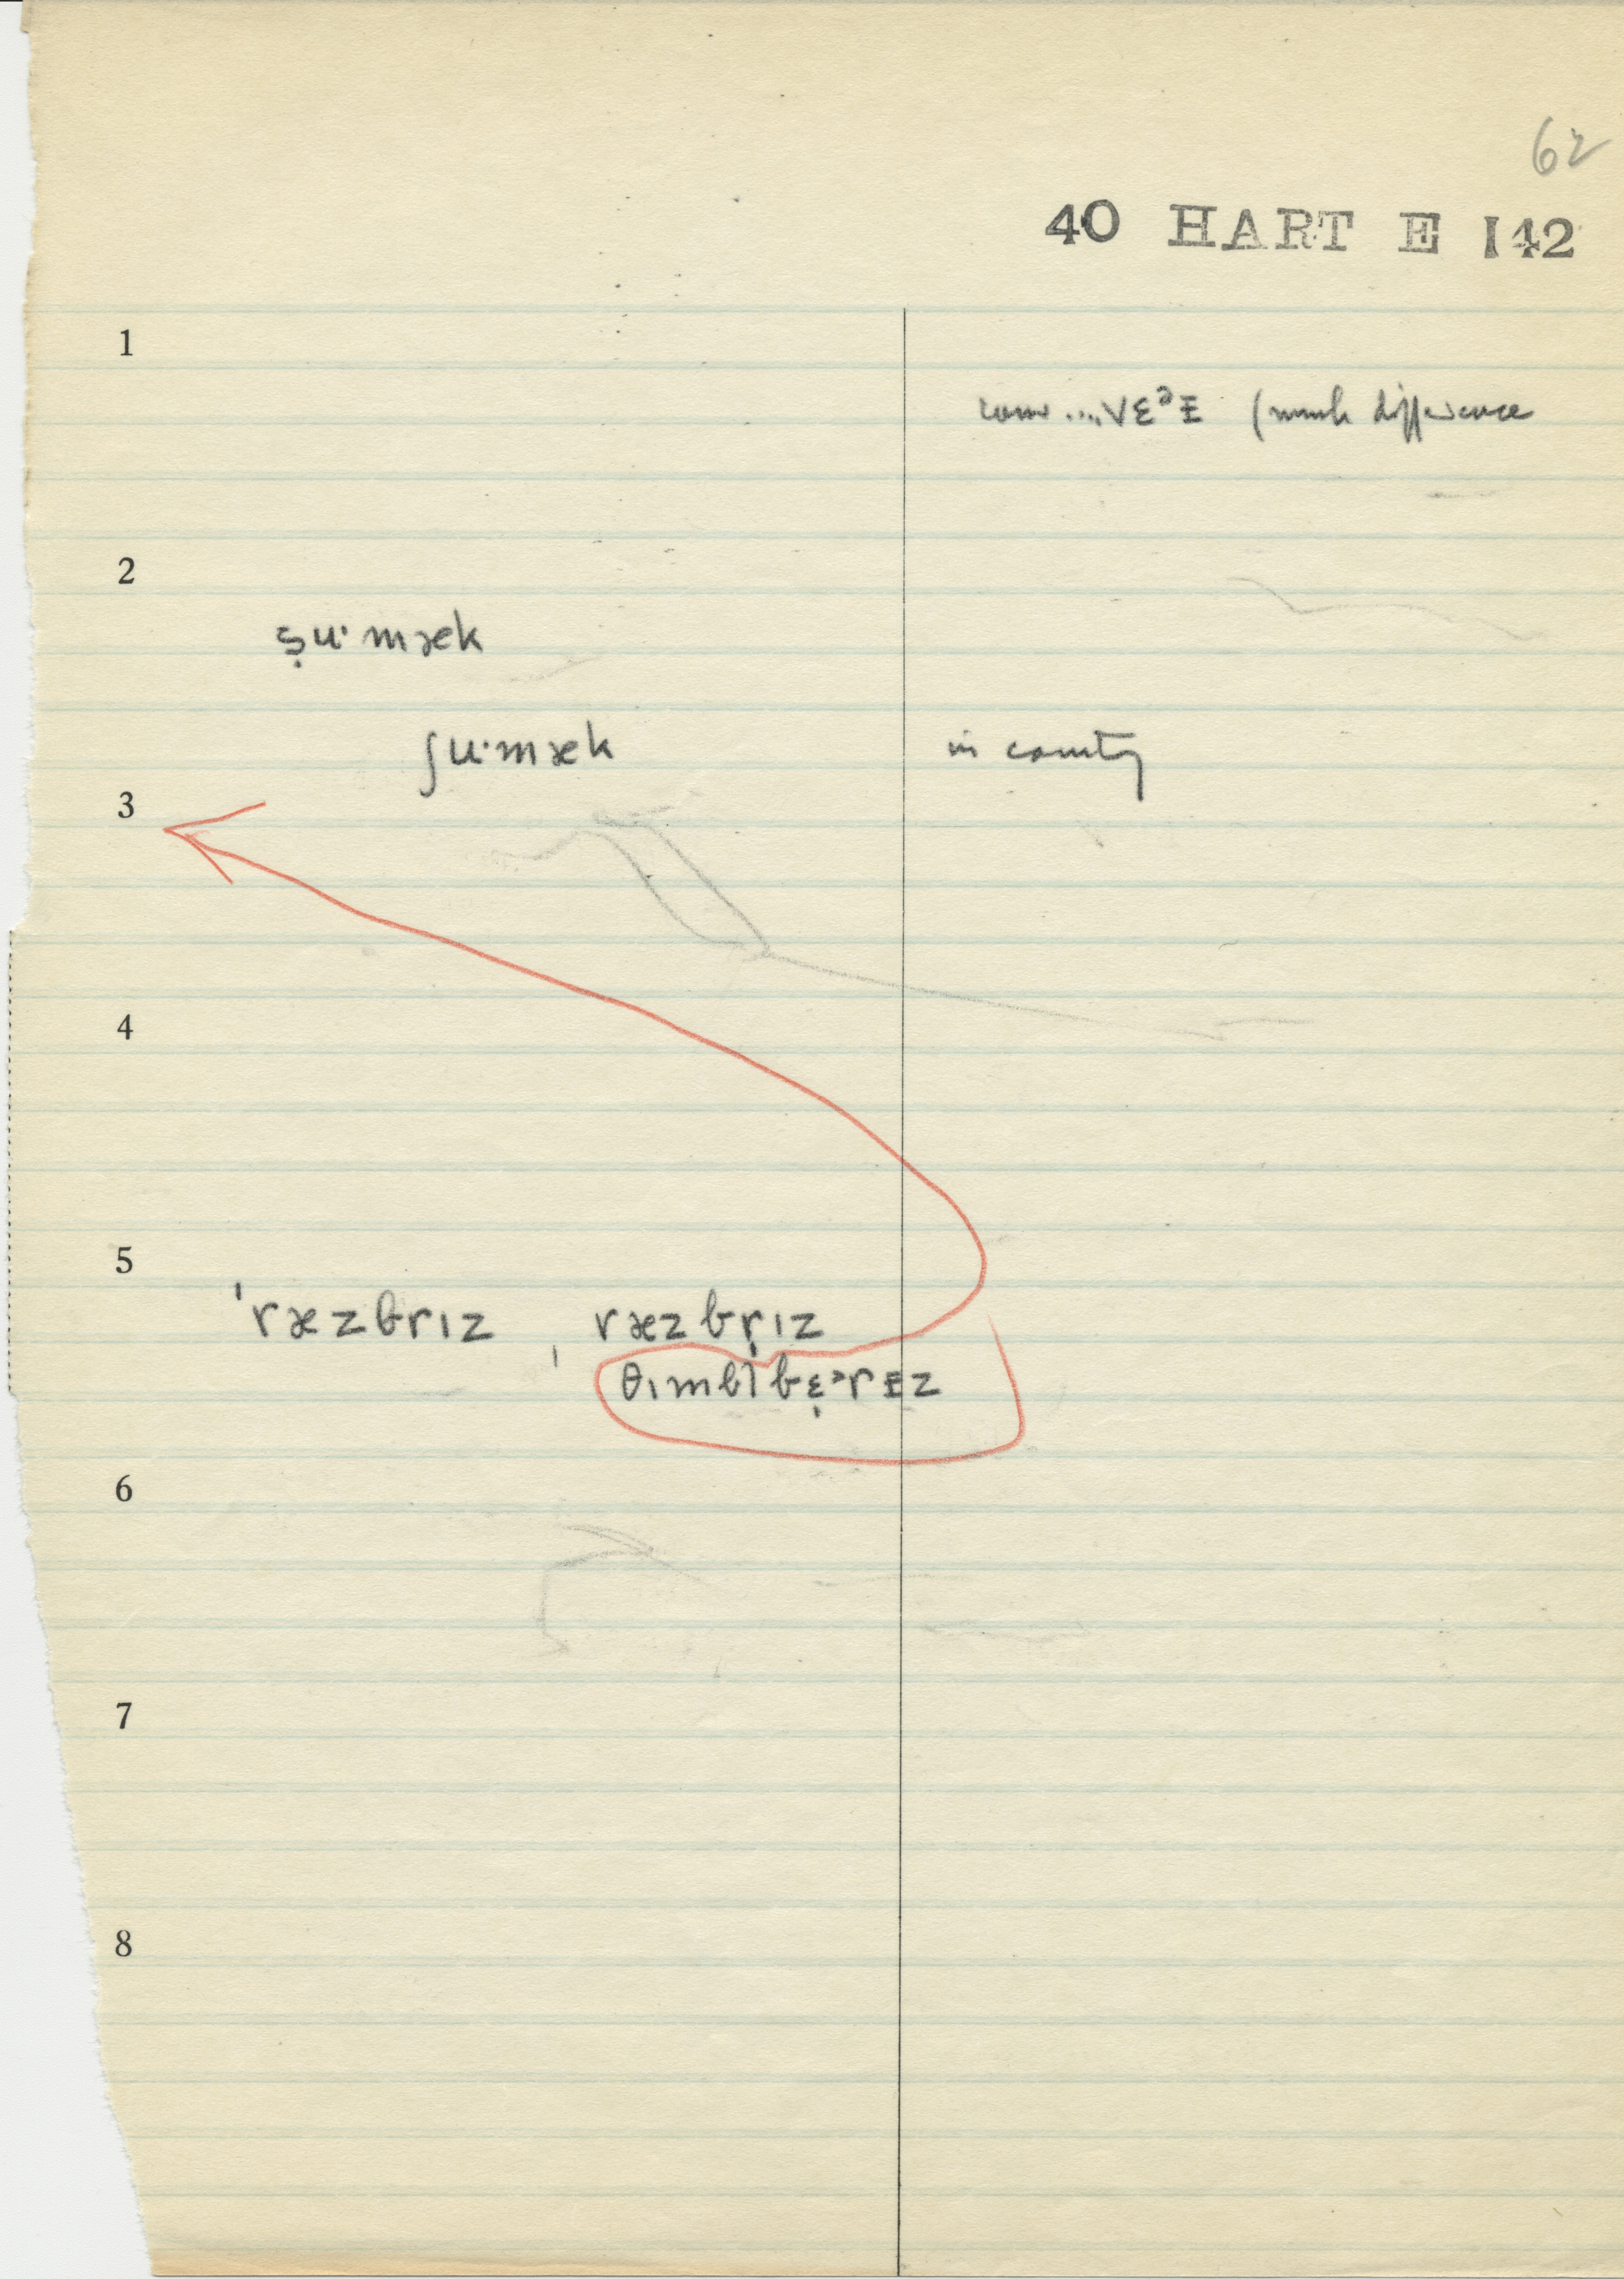 62
40 HART E 142
1
.... vɛᵊᵻ (much difference
2
ṣu·mæk
ʃu·mæk in county
3
4
5
ˈræzbrɪz , ræzbṛɪz
θɪmbl̩bɛ̣ᵊrᵻz
6
7
8